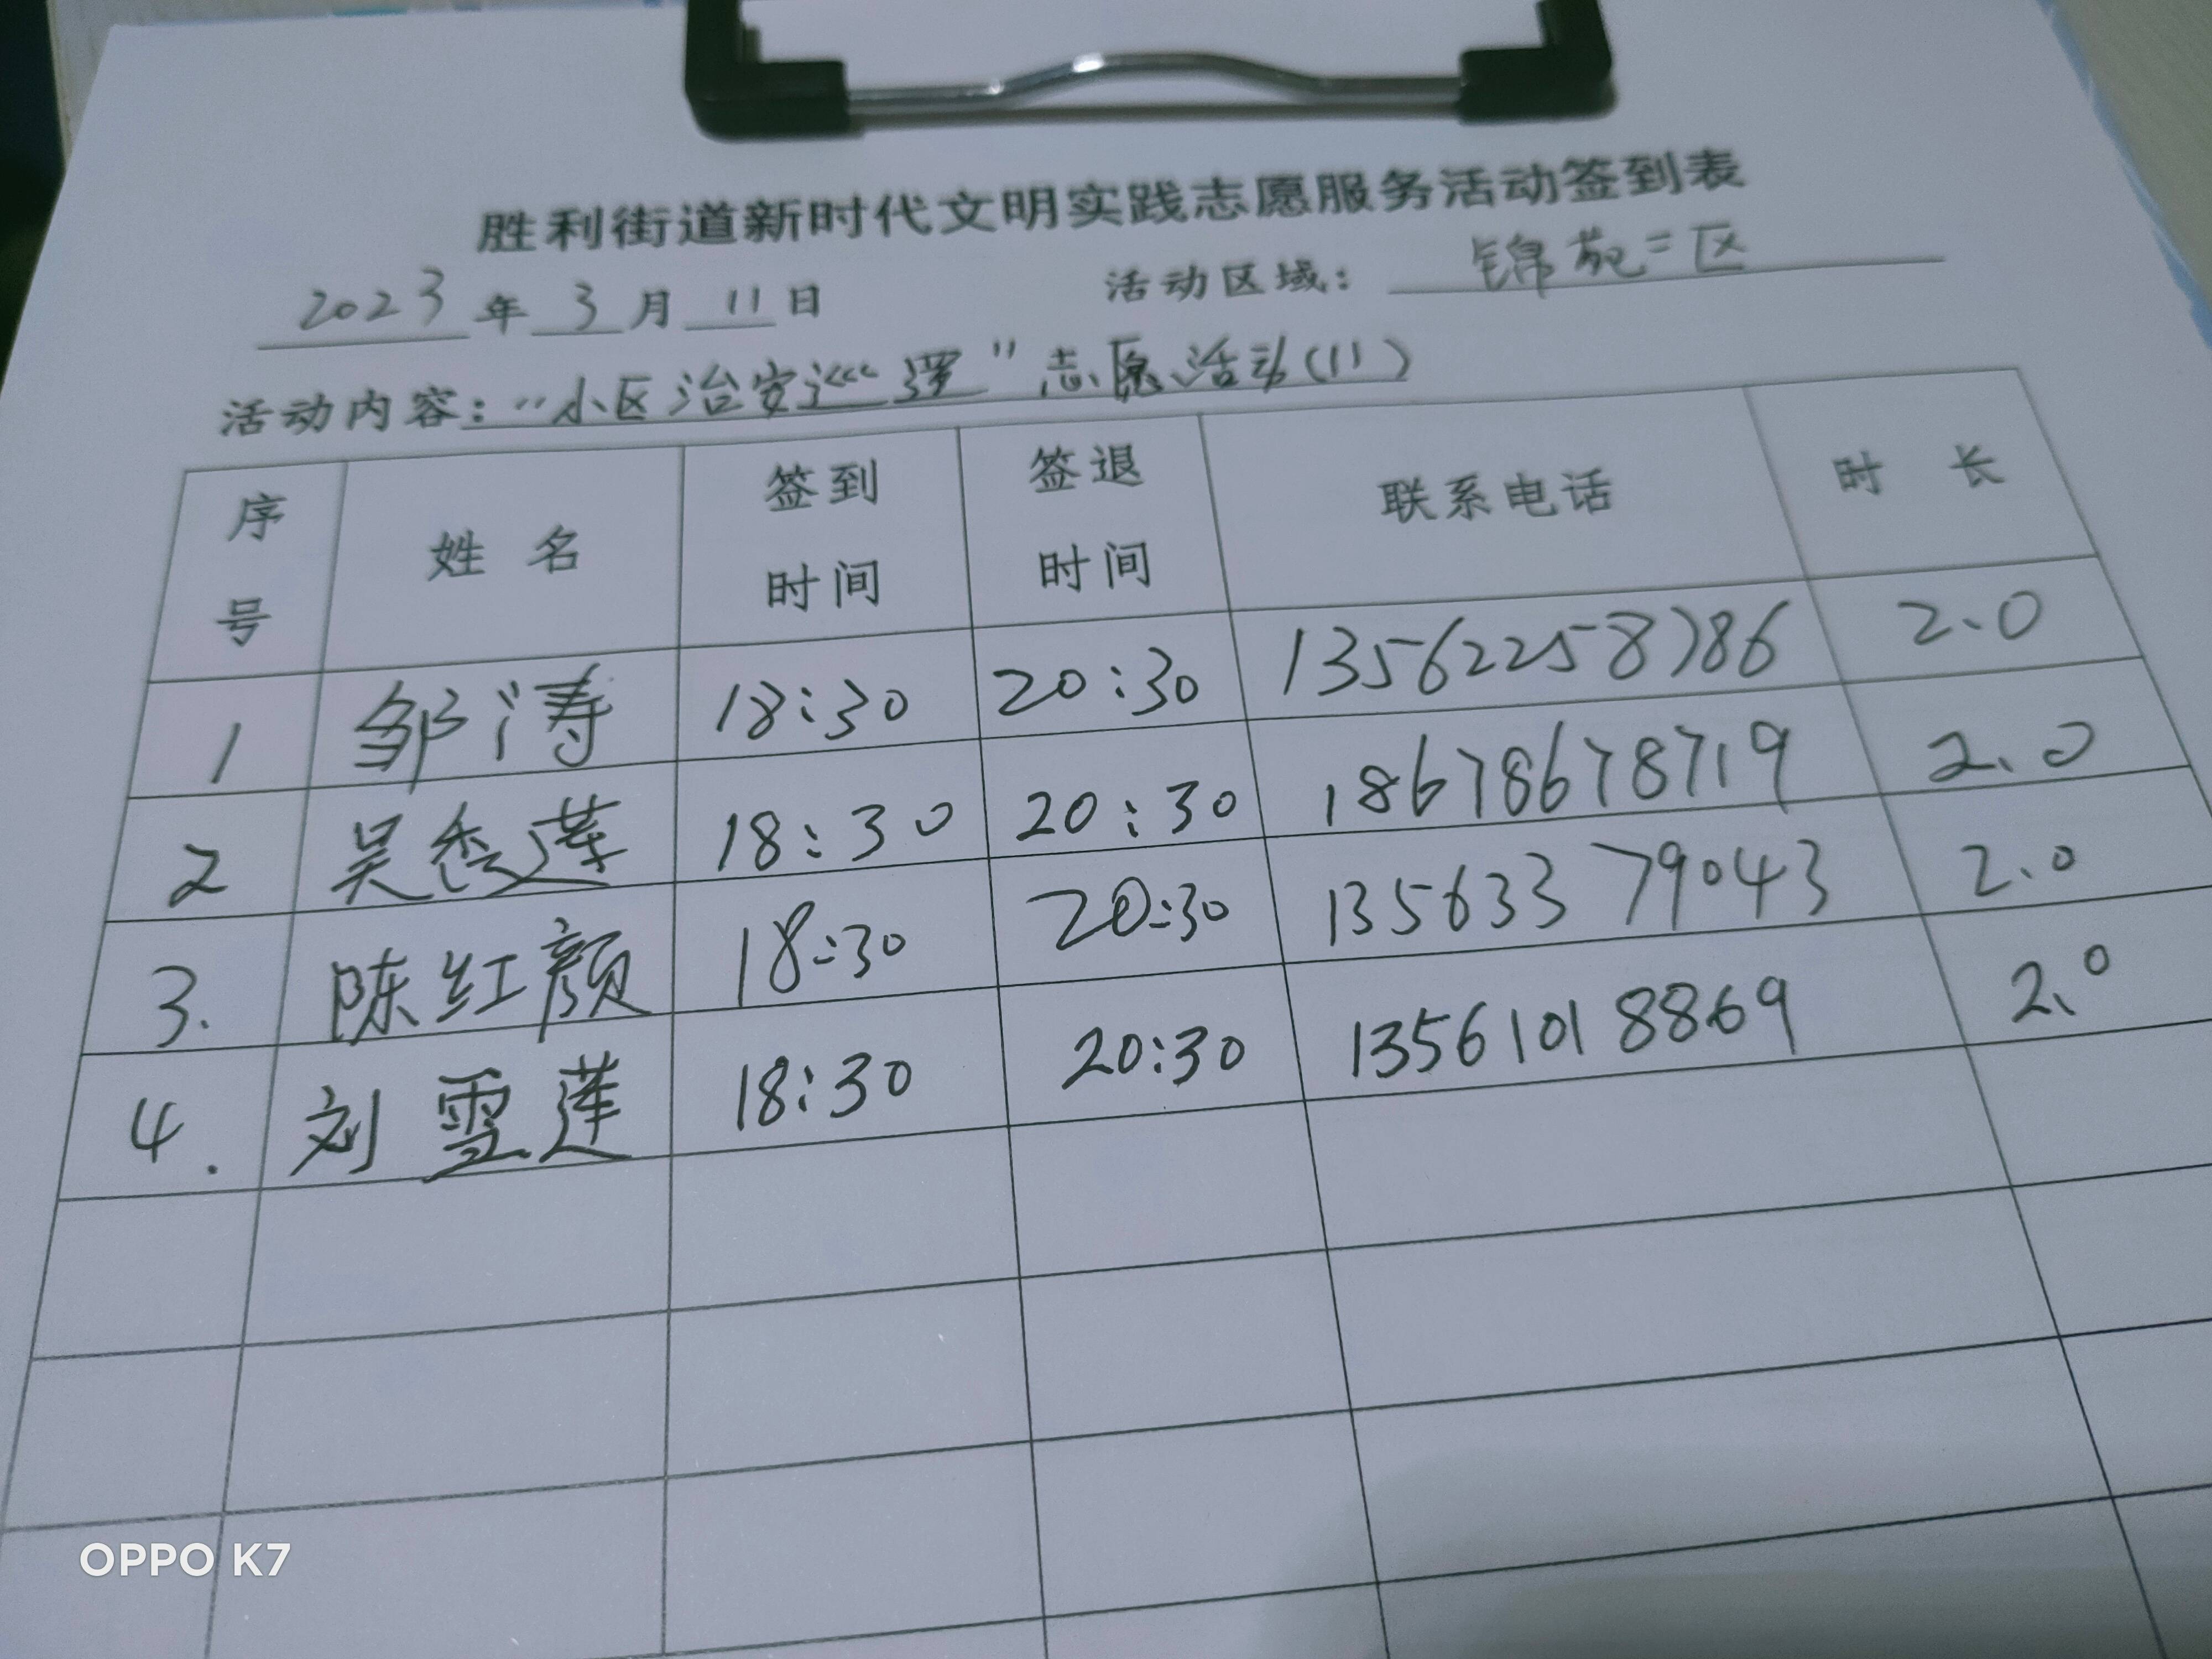 胜利街道新时代文明实践志愿服务活动签到表
2023年3月11日 活动区域：锦苑二区
活动内容："小区治安巡逻"志愿活动(11)
序号 姓名 签到时间 签退时间 联系电话 时长
1 邹涛 18:30 20:30 13562258786 2.0
2 吴秀莲 18:30 20:30 18678678719 2.0
3. 陈红颜 18:30 20:30 13563379043 2.0
4. 刘雪莲 18:30 20:30 13561018869 2.0
OPPO K7